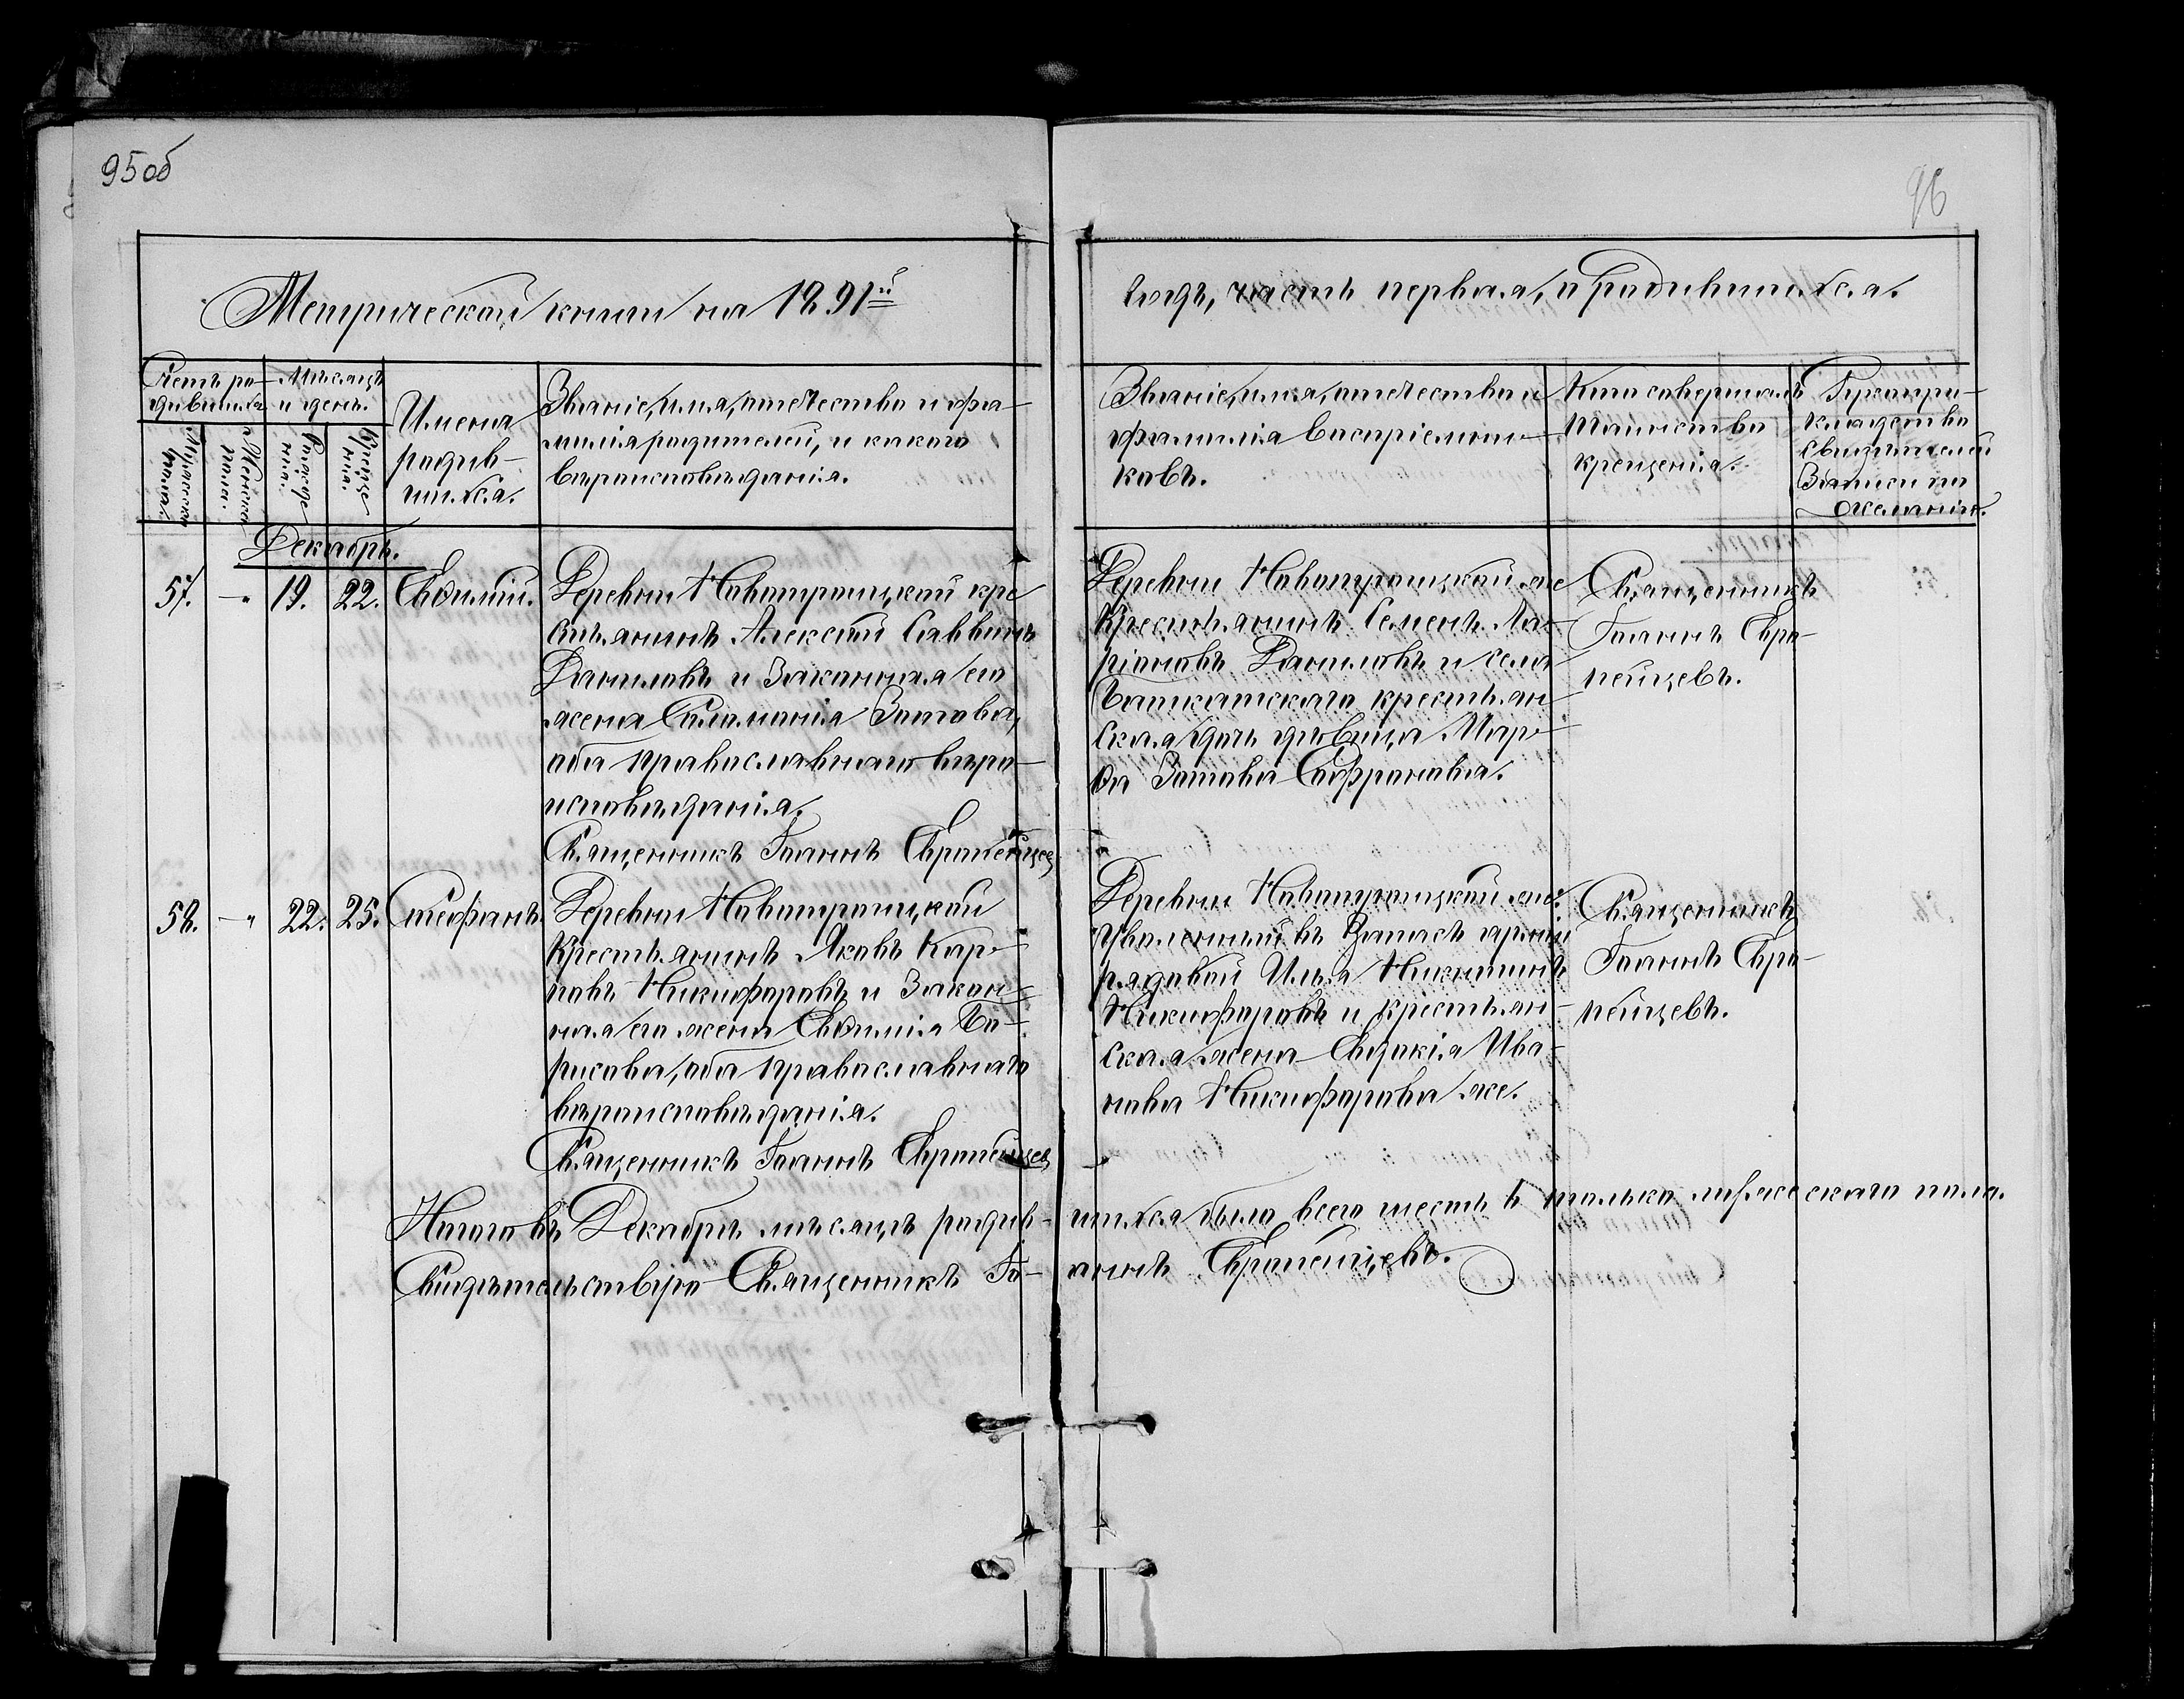 95об
96
Метрической книги на 1891й
годъ, часть первая, о родившихся.
Счетъ ро-
дившихся
Мѣсяцъ
и день.
Мужескаго
пола.
Женскаго
пола.
Рожде-
нія.
Креще-
нія.
Имена
родив-
шихся.
Званіе, имя, отчество и фа-
милія родителей, и какого
вѣроисповѣданія.
Званіе, имя, отчество и
фамилія воспріемни-
ковъ.
Кто совершалъ
таинство
крещенія.
Рукопри-
кладство
свидѣтелей
записи по
желанію.
Декабрь.
57. — " 19. 22. Евдимій.
Деревни Новотроицкой кре
стьянинъ Алексѣй Саввинъ
Даниловъ и законная его
жена Соломонія Зотова,
оба православнаго вѣро-
исповѣданія.
Священникъ Іоаннъ Европейцев
Деревни Новотроицкой же
крестьянинъ Семенъ Ла-
ріоновъ Даниловъ и села
Баткатскаго крестьян-
ская дочь дѣвица Мар-
ѳа Зотова Софронова.
Священникъ
Іоаннъ Евро-
пейцевъ.
58. — " 22. 25. Стефанъ.
Деревни Новотроицкой
крестьянинъ Яковъ Кар-
повъ Никифоровъ и закон-
ная его жена Евдимія Бо-
рисова, оба православнаго
вѣроисповѣданія.
Священникъ Іоаннъ Европейцев
Деревни Новотроицкой же
уволенный въ запасъ арміи
рядовой Илья Никитинъ
Никифоровъ и крестьян-
ская жена Евдокія Ива-
нова Никифорова же.
Священникъ
Іоаннъ Евро-
пейцевъ.
Итого въ Декабрѣ мѣсяцѣ родив-
шихся было всего шесть 6 только мужескаго пола.
Свидѣтельствую Священникъ Іо-
аннъ Европейцевъ.